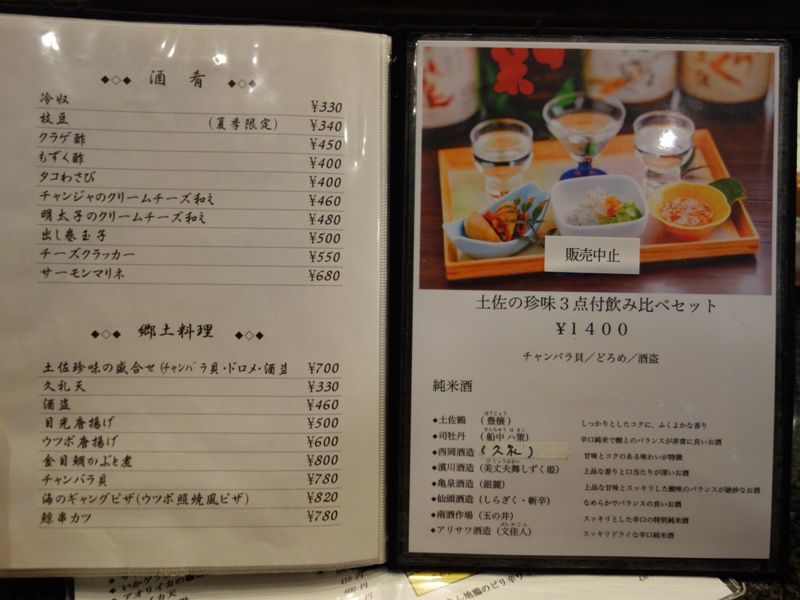 酒肴
冷奴 ¥330
枝豆 (夏季限定) ¥340
クラゲ酢 ¥450
もずく酢 ¥400
タコわさび ¥400
チャンジャのクリームチーズ和え ¥460
明太子のクリームチーズ和え ¥480
出し巻玉子 ¥500
チーズクラッカー ¥550
サーモンマリネ ¥680
郷土料理
土佐珍味の盛合せ(チャンバラ貝・ドロメ・酒盗 ¥700
久礼天 ¥330
酒盗 ¥460
目光唐揚げ ¥500
ウツボ唐揚げ ¥600
金目鯛かぶと煮 ¥800
チャンバラ貝 ¥780
海のギャングピザ(ウツボ照焼風ピザ) ¥820
鯨串カツ ¥780
販売中止
土佐の珍味3点付飲み比べセット
¥1400
チャンバラ貝／どろめ／酒盗
純米酒
◆土佐鶴 (豊穣) ほうじょう しっかりとしたコクに、ふくよかな香り
◆司牡丹 (船中八策) せんちゅうはっさく 辛口純米で酸とのバランスが非常に良いお酒
◆西岡酒造 (久礼) 甘味とコクのある味わいが特徴
◆濱川酒造 (美丈夫舞しずく姫) 上品な香りと口当たりが深いお酒
◆亀泉酒造 (銀麓) 上品な甘味とスッキリした酸味のバランスが絶妙なお酒
◆仙頭酒造 (しらぎく・斬辛) なめらかでバランスの良いお酒
◆南酒作場 (玉の井) スッキリとした辛口の特別純米酒
◆アリサワ酒造 (文佳人) ぶんかじん スッキリドライな辛口純米酒